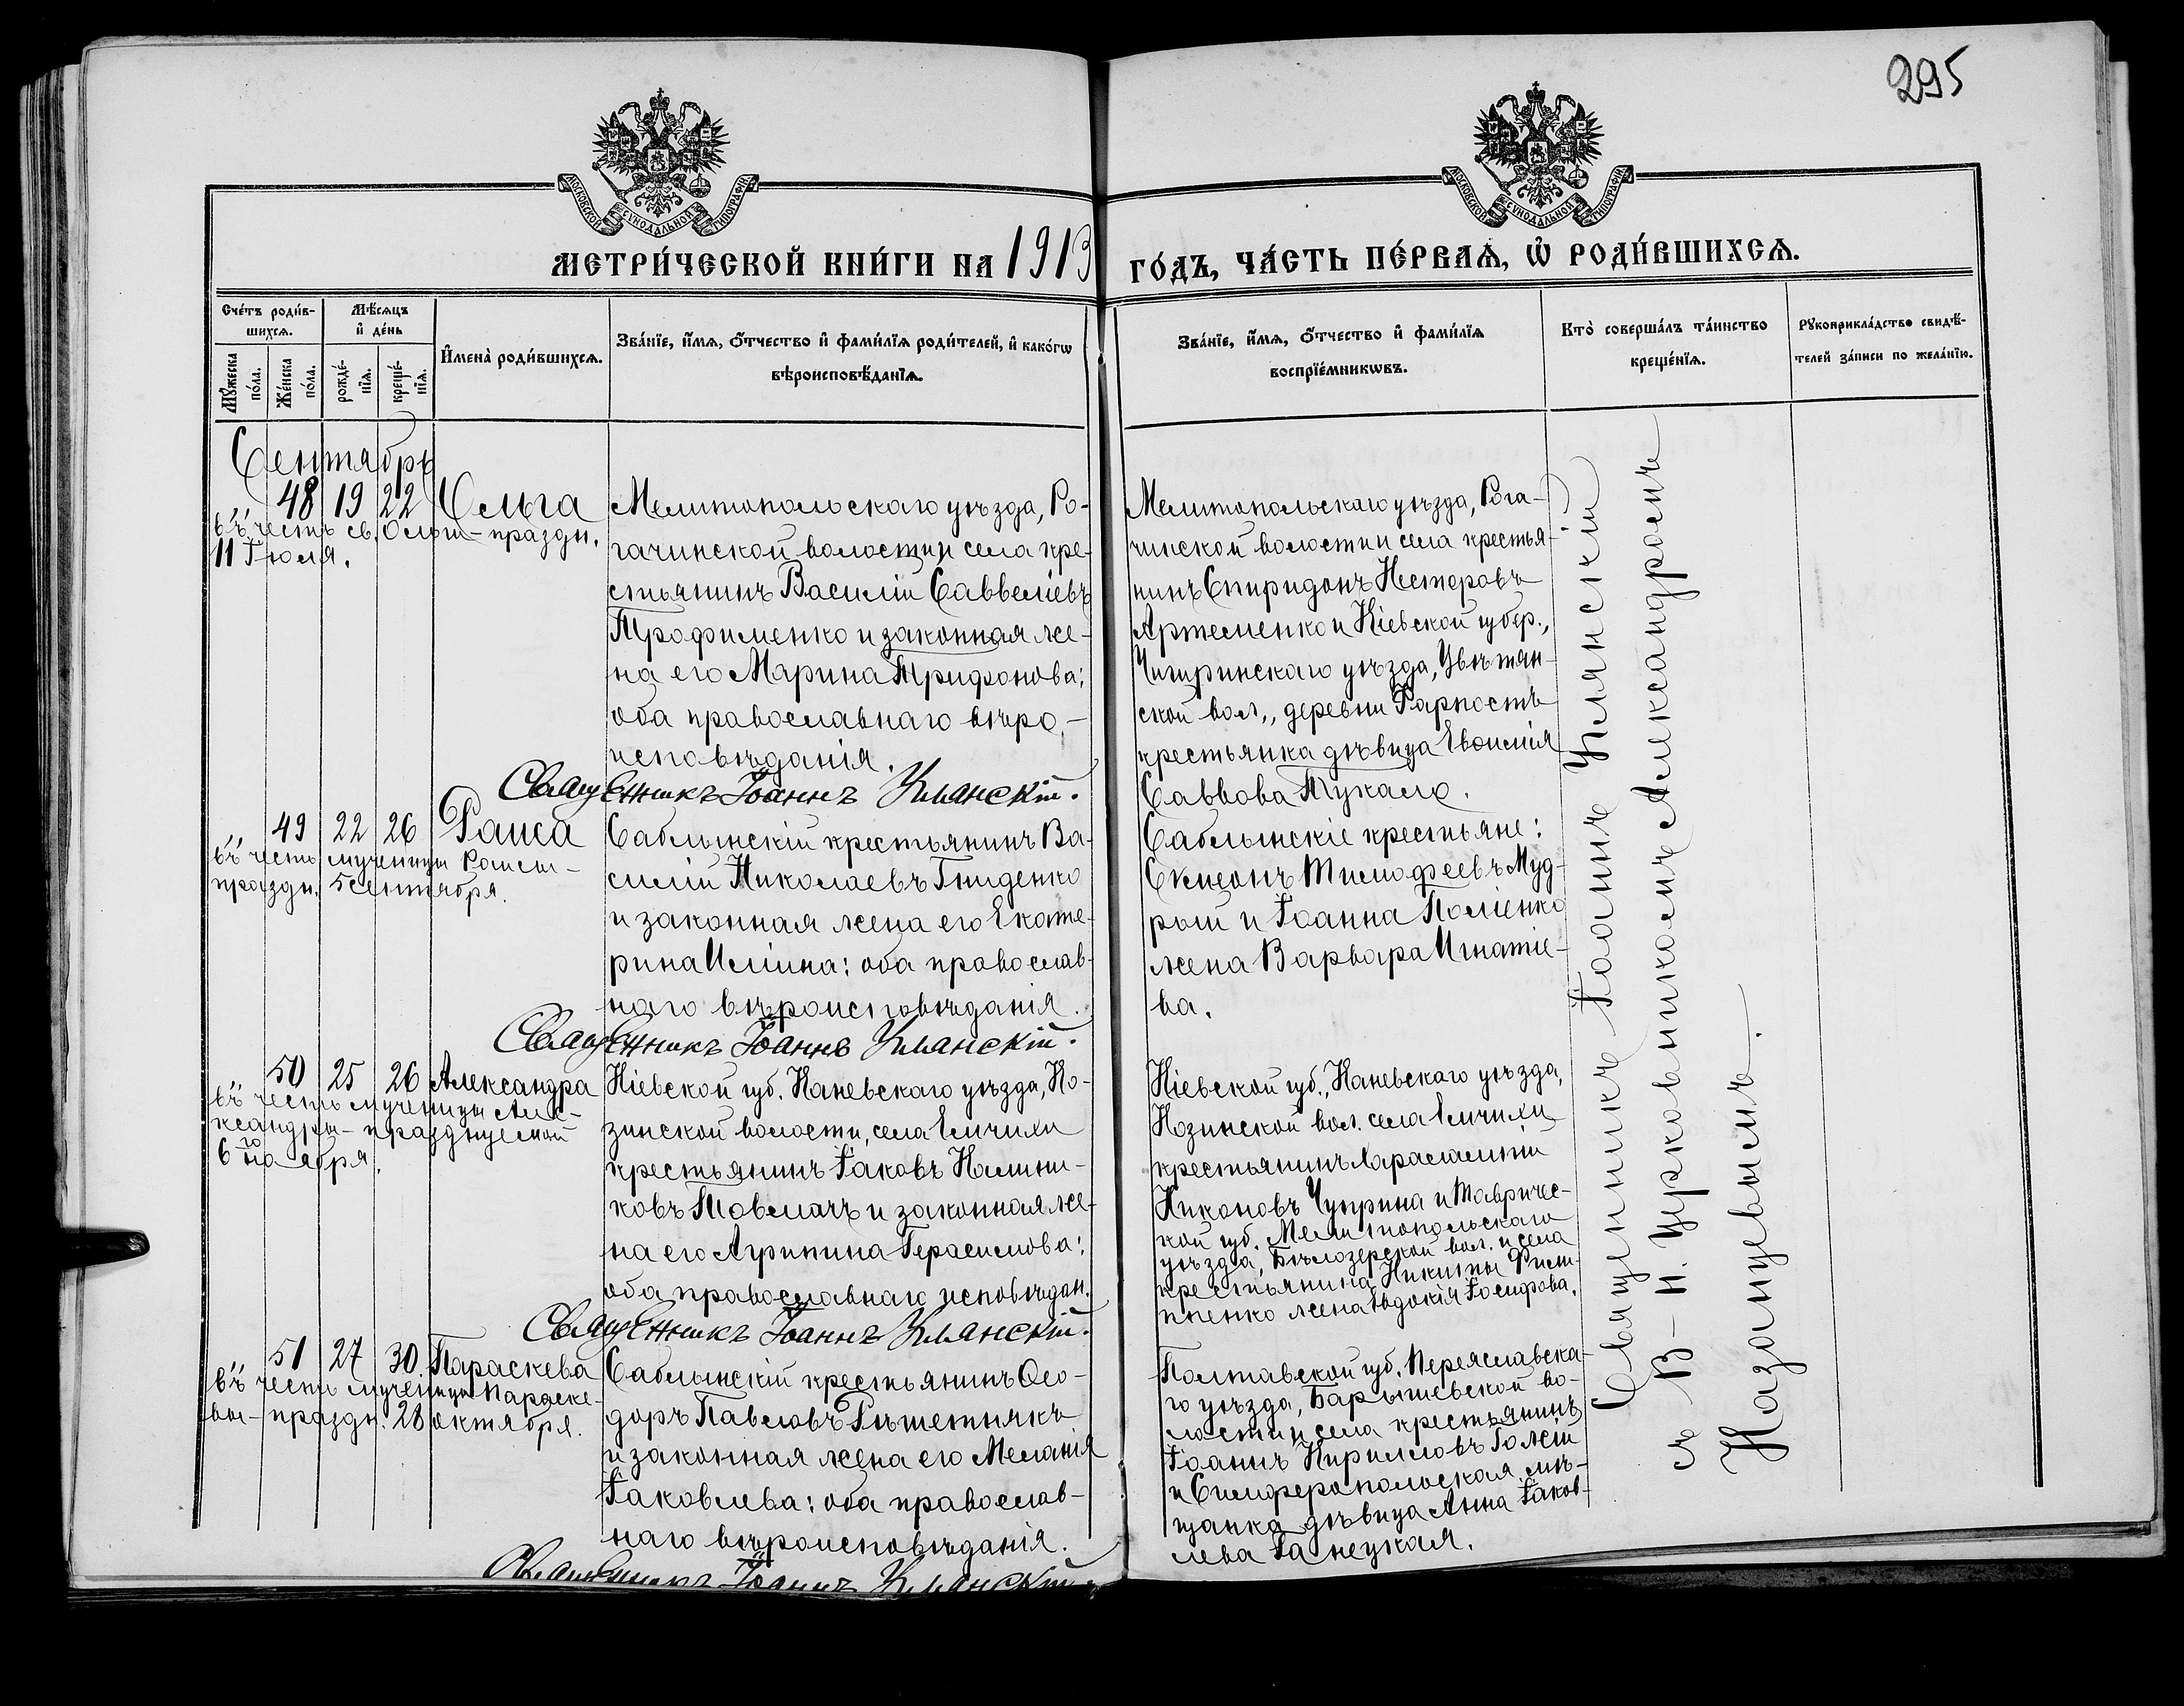 295
МОСКОВСКОЙ СУНОДАЛЬНОЙ ТИПОГРАФІИ
МОСКОВСКОЙ СУНОДАЛЬНОЙ ТИПОГРАФІИ
МЕТРИ́ЧЕСКОЙ КНИ́ГИ НА 1913
ГО́ДЪ, ЧА́СТЬ ПЕ́РВАѦ, Ѡ҆ РОДИ́ВШИХСѦ.
Сче́тъ роди́в-
шихсѧ.
Мѣ́сѧцъ
и҆ де́нь
Мꙋ́жеска
по́ла.
Же́нска
по́ла.
рожде́-
нїѧ.
креще́-
нїѧ.
И҆мена̀ роди́вшихсѧ.
Зва́нїе, и҆́мѧ, ѻ҆́тчество и҆ фами́лїѧ роди́телей, и҆ како́гѡ
вѣроисповѣ́данїѧ.
Зва́нїе, и҆́мѧ, ѻ҆́тчество и҆ фами́лїѧ
воспрїе́мникѡвъ.
Кто̀ соверша́лъ та́инство
креще́нїѧ.
Рꙋкоприкла́дство свидѣ́-
телей за́писи по жела́нїю.
Сентябрь
48 19 22 Ольга
въ честь св. Ольги - праздн.
11 Іюля.
Мелитопольскаго уѣзда, Ро-
гачинской волости и села кре-
стьянинъ Василій Савеліевъ
Трофименко и законная же-
на его Марина Трифонова;
оба православнаго вѣро-
исповѣданія.
Священникъ Іоаннъ Уманскій.
Мелитопольскаго уѣзда, Рога-
чинской волости и села крестья-
нинъ Спиридонъ Нестеровъ
Артеменко и Кіевской губер.,
Чигиринскаго уѣзда, Цвѣтян-
ской вол., деревни Фарпостъ
крестьянка дѣвица Евфимія
Саввова Тукало.
49 22 26 Раиса
въ честь мученицы Раисы -
праздн. 5 сентября.
Саблынскій крестьянинъ Ва-
силій Николаевъ Гниденко
и законная жена его Екате-
рина Иліина: оба православ-
наго вѣроисповѣданія.
Священникъ Іоаннъ Уманскій.
Саблынскіе крестьяне:
Симеонъ Тимофеевъ Муд-
рый и Іоанна Поліенко
жена Варвара Игнатіе-
ва.
50 25 26 Александра
въ честь мученицы Але-
ксандры - празднуемой
6го ноября.
Кіевской губ. Каневскаго уѣзда, Ко-
зинской волости, села Емчихи
крестьянинъ Іаковъ Калини-
ковъ Товмачъ и законная же-
на его Агрипина Герасимова:
оба православнаго исповѣдан.
Священникъ Іоаннъ Уманскій.
Кіевской губ., Каневскаго уѣзда,
Козинской вол. села Емчихи
крестьянинъ Харлампій
Никоновъ Чуприна и Тавричес-
кой губ. Мелитопольскаго
уѣзда, Бѣлозерской вол. и села
крестьянина Никиты Фили-
пенко жена Евдокія Іосифова.
51 27 30 Параскева
въ честь мученицы Параске-
вы - праздн. 28 октября.
Саблынскій крестьянинъ Ѳео-
доръ Павловъ Рѣшетнякъ
и законная жена его Меланія
Іаковлева: оба православ-
наго вѣроисповѣданія.
Священникъ Іоаннъ Уманскій.
Полтавской губ. Переяславска-
го уѣзда, Барышевской во-
лости и села крестьянинъ
Іоаннъ Кирилловъ Голый
и Симферопольская мѣ-
щанка дѣвица Анна Іаков-
лева
Священникъ Іоаннъ Уманскій
съ В-И. Церковникомъ Александромъ
Казанцевымъ.